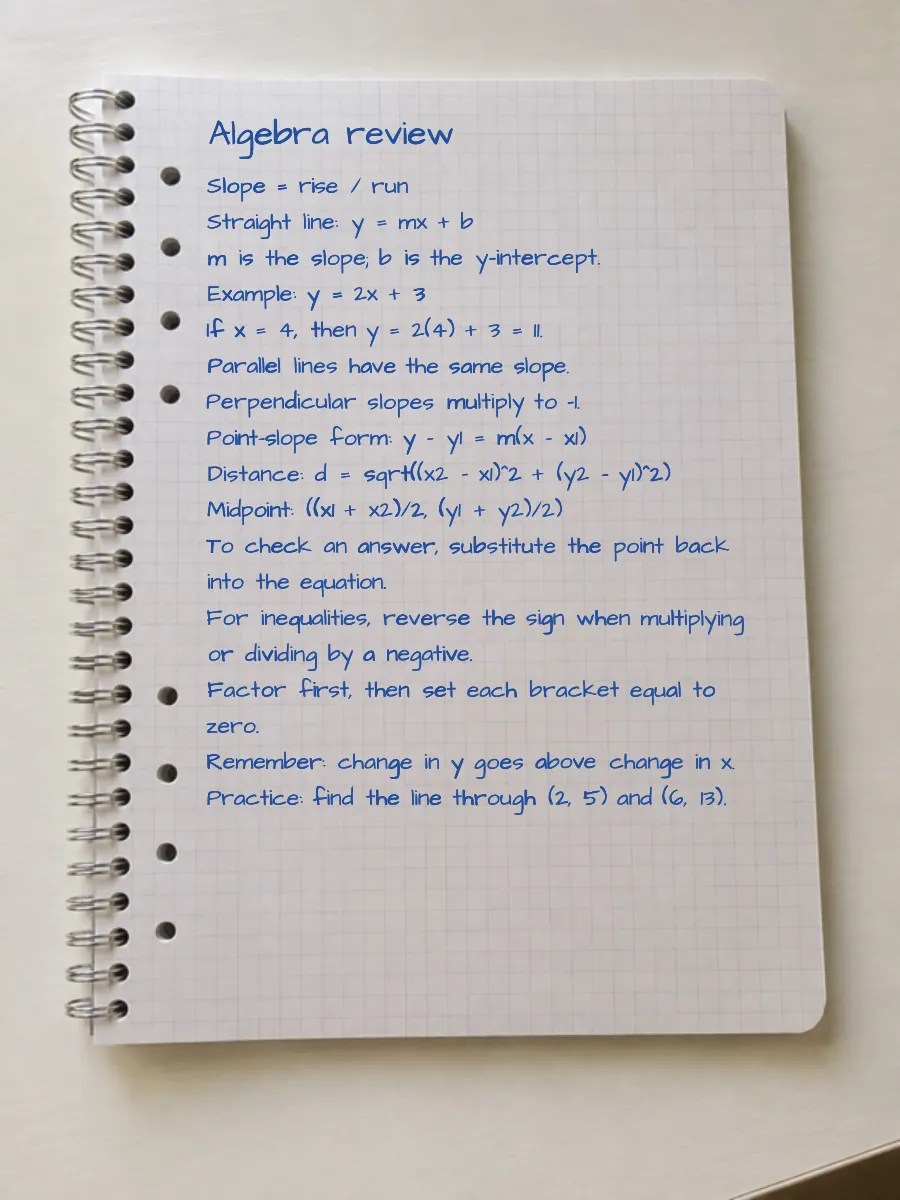 Algebra review
Slope = rise / run
Straight line: y = mx + b
m is the slope; b is the y-intercept.
Example: y = 2x + 3
If x = 4, then y = 2(4) + 3 = 11.
Parallel lines have the same slope.
Perpendicular slopes multiply to -1.
Point-slope form: y - y1 = m(x - x1)
Distance: d = sqrt((x2 - x1)^2 + (y2 - y1)^2)
Midpoint: ((x1 + x2)/2, (y1 + y2)/2)
To check an answer, substitute the point back
into the equation.
For inequalities, reverse the sign when multiplying
or dividing by a negative.
Factor first, then set each bracket equal to
zero.
Remember: change in y goes above change in x.
Practice: find the line through (2, 5) and (6, 13).